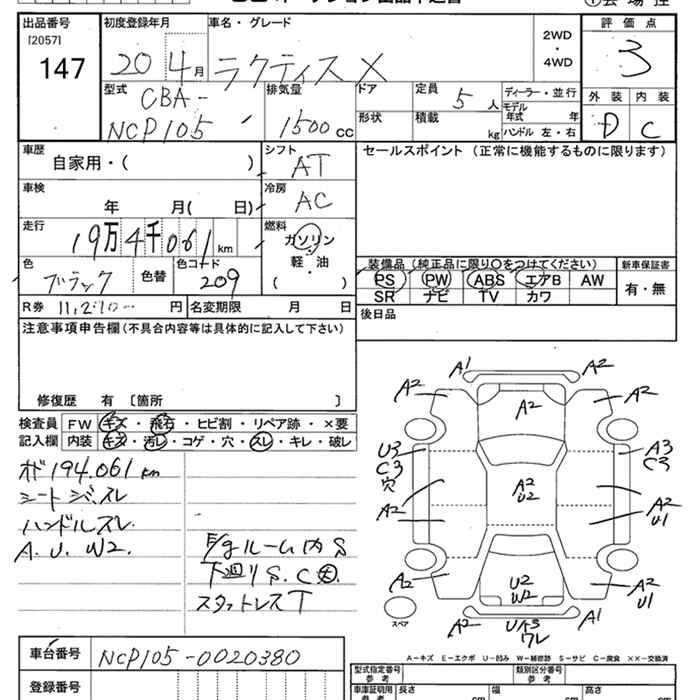 出品番号 初度登録年月 車名・グレード 評価点
[2057]
147 20年4月 ラクティス X 2WD・4WD 3
型式 排気量 ドア 定員 ディーラー・並行 外装 内装
CBA- 5人 モデル年式 年
NCP105 1500cc 形状 積載 kg ハンドル 左・右 D C
車歴 シフト セールスポイント (正常に機能するものに限ります)
自家用・( ) AT
車検 冷房
年 月( 日) AC
走行 燃料
19万4千061km ガソリン
軽・油
色 色替 色コード ( ) 装備品 (純正品に限り○をつけてください) 新車保証書
ブラック 209 PS PW ABS エアB AW 有・無
SR ナビ TV カワ
R券 11,210- 円 名変期限 月 日 後日品
注意事項申告欄 (不具合内容等は具体的に記入して下さい)
修復歴 有 〔箇所 〕
検査員 FW キズ・飛石・ヒビ割・リペア跡・×要
記入欄 内装 キズ・汚レ・コゲ・穴・スレ・キレ・破レ
オド194.061km
シートジミスレ
ハンドルスレ
A.U.W2.
E/gルーム内S
下廻りS.C大.
スタットレスT
A1 A2
A2 A2 A2
U3 A3
C3 C3
穴
A2 A2 A2
U2 U1
A2 U2 A2
W2 U1
スペア A2 UA3 A1
ワレ
A-キズ E-エクボ U-凹み W-補修跡 S-サビ C-腐食 ××-交換済
車台番号 NCP105-0020380
型式指定番号 類別区分番号
参考 参考
登録番号 車庫証明用 長さ 幅 高さ
参考 cm cm cm